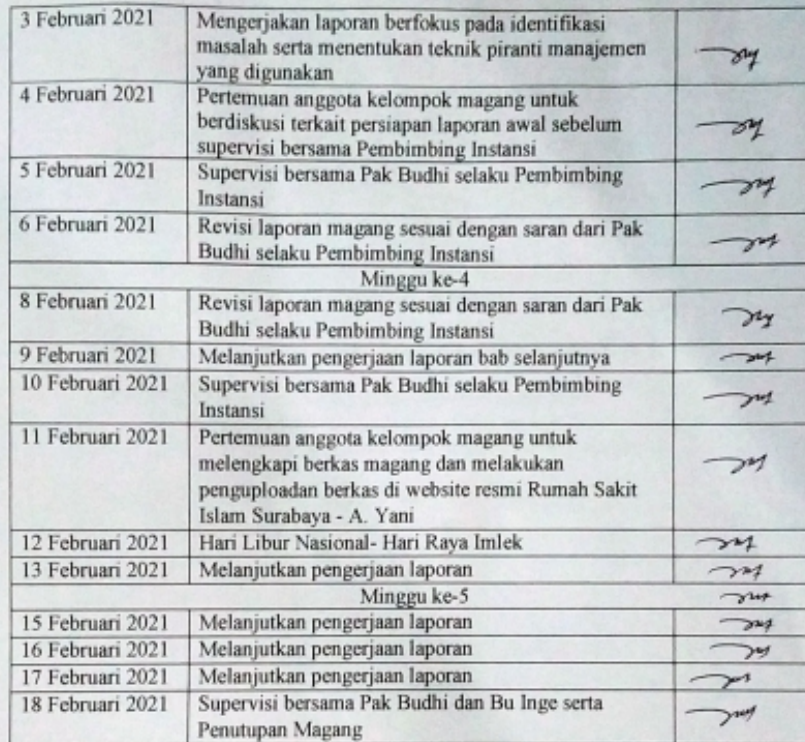 3 Februari 2021 Mengerjakan laporan berfokus pada identifikasi
masalah serta menentukan teknik piranti manajemen
yang digunakan
4 Februari 2021 Pertemuan anggota kelompok magang untuk
berdiskusi terkait persiapan laporan awal sebelum
supervisi bersama Pembimbing Instansi
5 Februari 2021 Supervisi bersama Pak Budhi selaku Pembimbing
Instansi
6 Februari 2021 Revisi laporan magang sesuai dengan saran dari Pak
Budhi selaku Pembimbing Instansi
Minggu ke-4
8 Februari 2021 Revisi laporan magang sesuai dengan saran dari Pak
Budhi selaku Pembimbing Instansi
9 Februari 2021 Melanjutkan pengerjaan laporan bab selanjutnya
10 Februari 2021 Supervisi bersama Pak Budhi selaku Pembimbing
Instansi
11 Februari 2021 Pertemuan anggota kelompok magang untuk
melengkapi berkas magang dan melakukan
penguploadan berkas di website resmi Rumah Sakit
Islam Surabaya - A. Yani
12 Februari 2021 Hari Libur Nasional- Hari Raya Imlek
13 Februari 2021 Melanjutkan pengerjaan laporan
Minggu ke-5
15 Februari 2021 Melanjutkan pengerjaan laporan
16 Februari 2021 Melanjutkan pengerjaan laporan
17 Februari 2021 Melanjutkan pengerjaan laporan
18 Februari 2021 Supervisi bersama Pak Budhi dan Bu Inge serta
Penutupan Magang